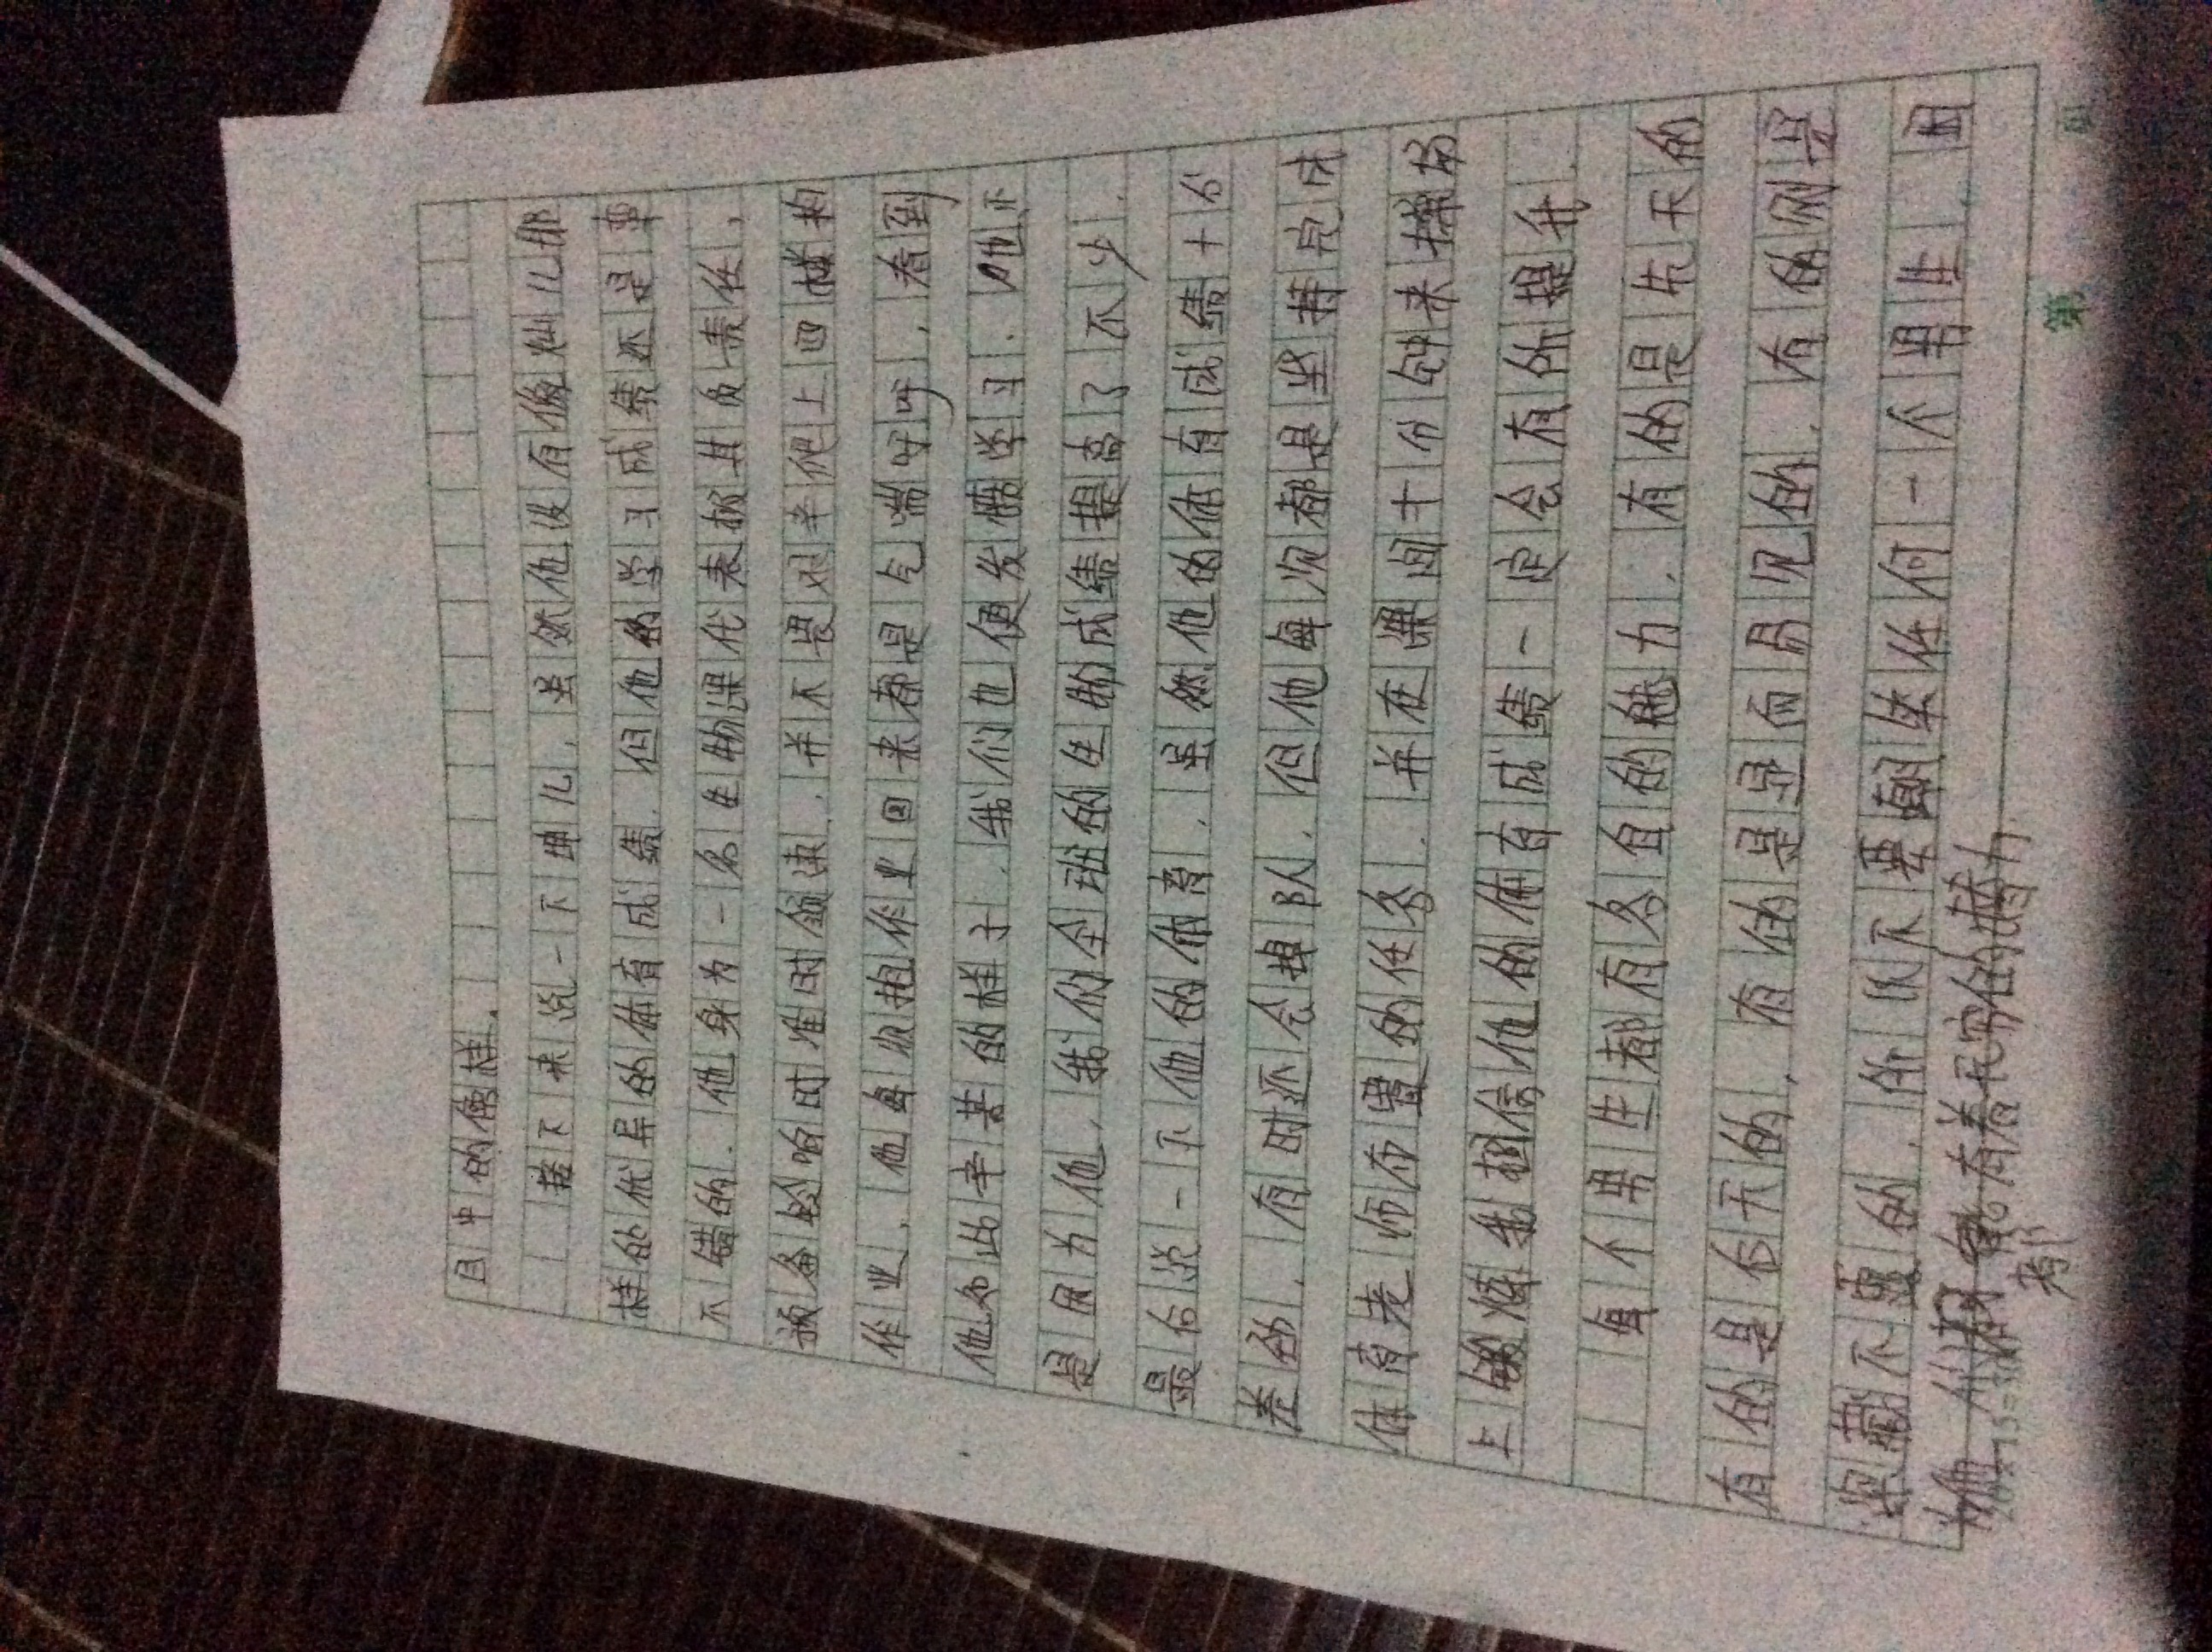 目中的傍样.
接下来说一下坤儿.虽然他没有像灿儿那
样的优异的体育成绩.但他的学习成绩还是
不错的.他身为一名生物课代表极其负责任,
预备铃响时准时领读.并不畏艰辛爬上四楼抱
作业.他每次抱作业回来都是气喘呼呼.看到
他如此辛苦的样子.我们也便发愤学习.也正
是因为他.我们全班的生物成绩提高了不少.
最后说一下他的体育.虽然他的体育成绩十分
差劲.有时还会掉队.但他每次都是坚持完成
体育老师布置的任务.并在课间十分钟来操场
上锻炼我相信他的体育成绩一定会有所提升.
每个男生都有各自的魅力.有的是先天的
有的是后天的.有的是显而易见的.有的则是
深藏不露的.所以不要嘲笑任何一个男生.因
为他们都有着无穷的魅力
20×15=300
第 页